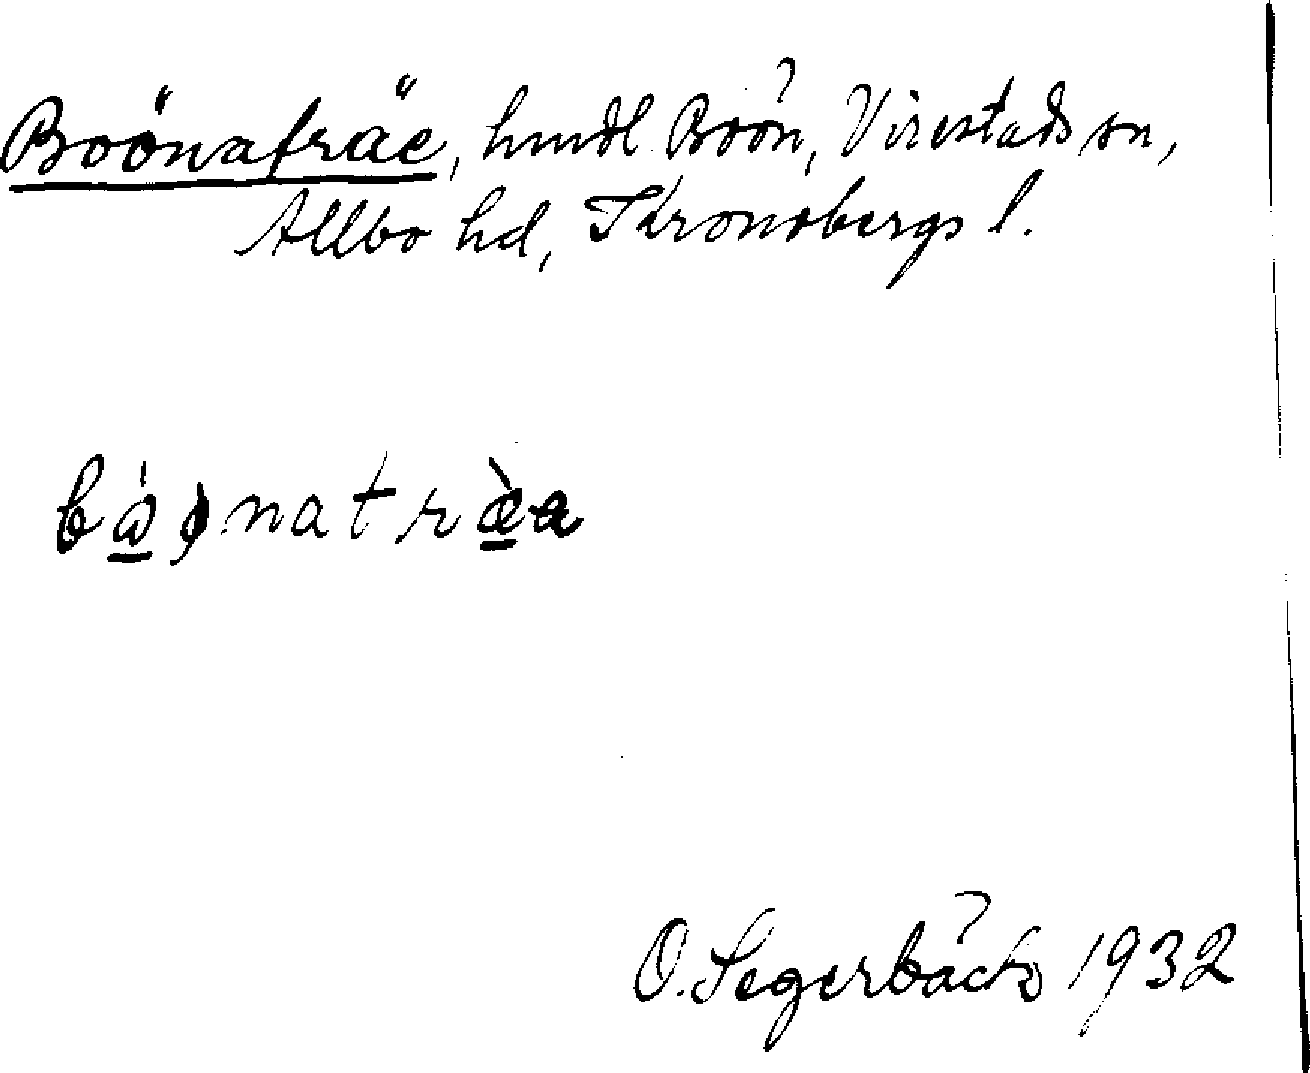 Boönaträe, hmdl Boön, Virestads sn,
Allbo hd, Kronobergs l.
bò̱ǫnatræ̱̀a
O. Segerbäck 1932